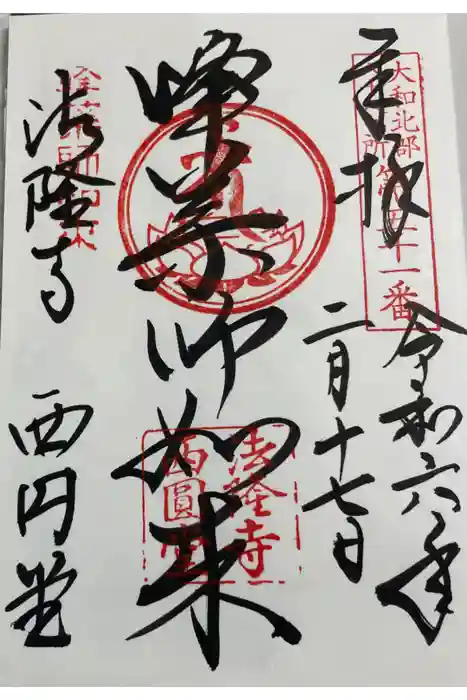 奉拝
令和六年
二月十七日
峰薬師如来
法隆寺
西円堂
大和北部
法隆寺
西圓堂